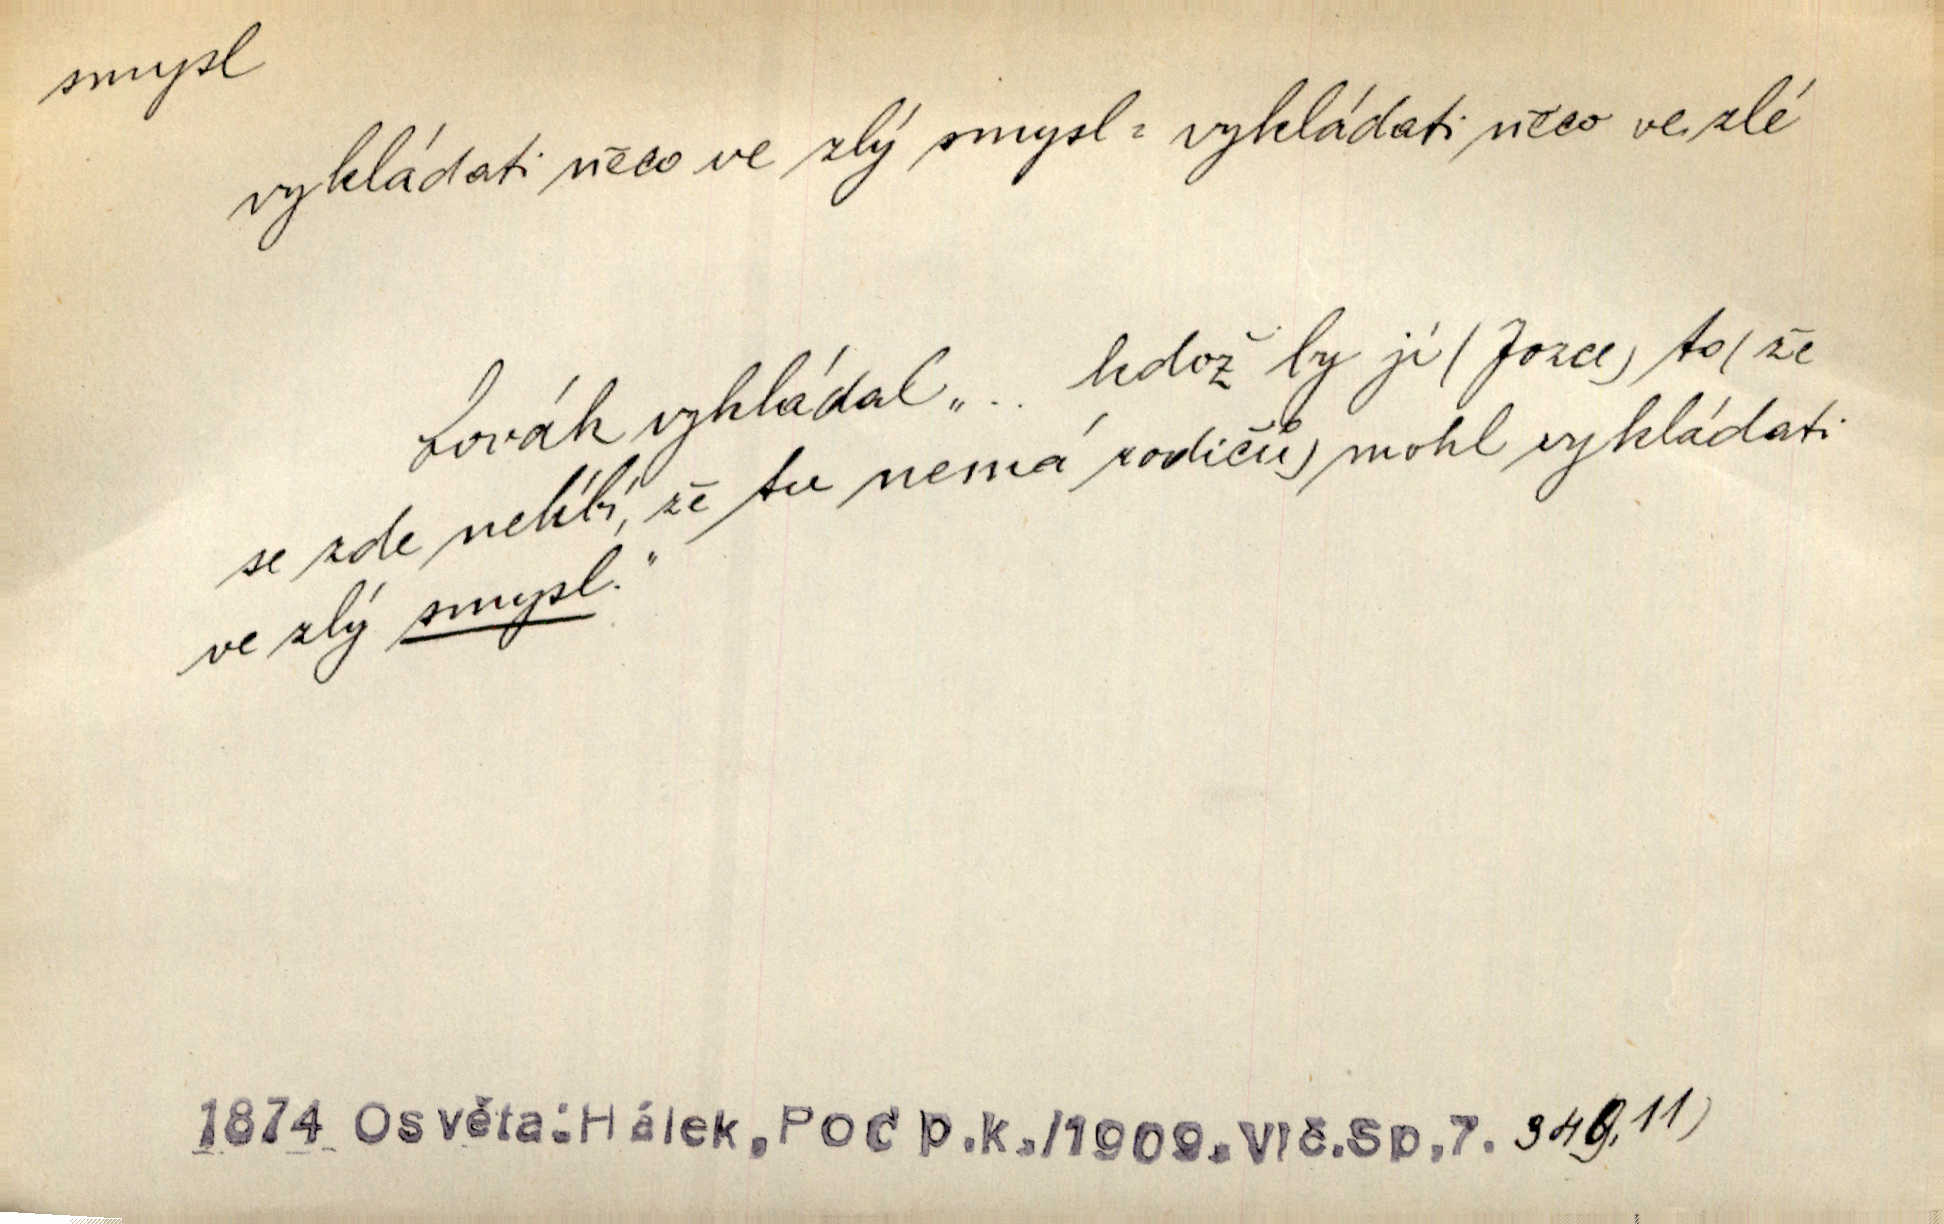 smysl
vykládati něco ve zlý smysl = vykládati něco ve zlé
Lovák vykládal „ .. kdož by jí (Jozce) to (že
se zde nelíbí, že tu nemá rodičů) mohl vykládati
ve zlý smysl."
1874 Osvěta: Hálek, Pod p.k./1909. Vlč. Sp, 7. 349, 11)